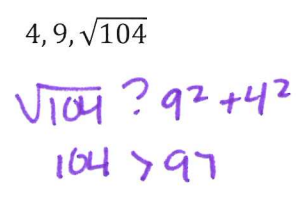 4, 9, √104
√104 ? 9² + 4²
104 > 97